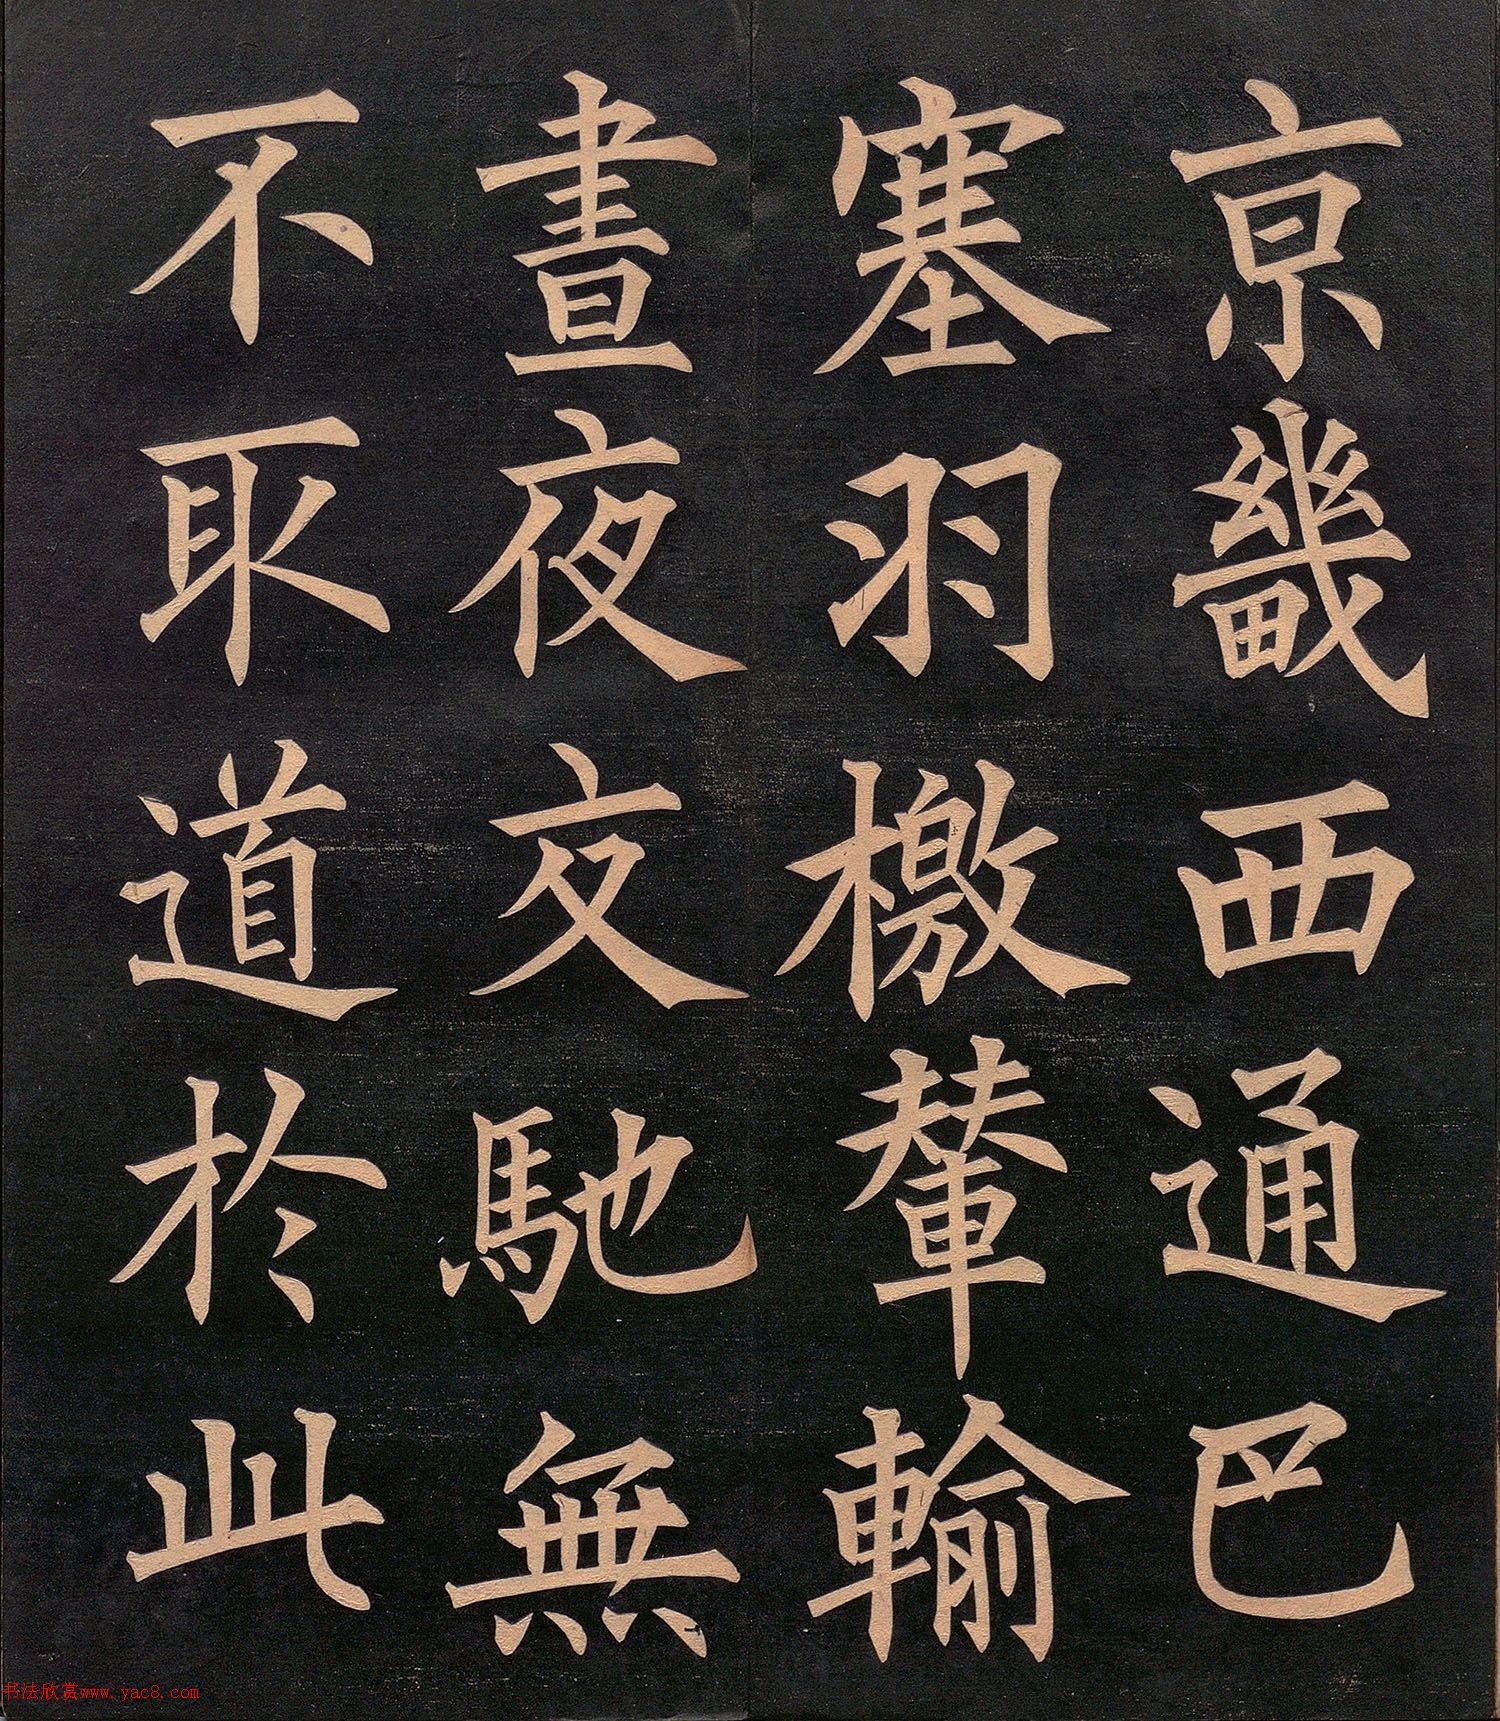 京畿西通巴
塞羽檄輦輸
晝夜交馳無
不取道於此
书法欣赏www.yac8.com